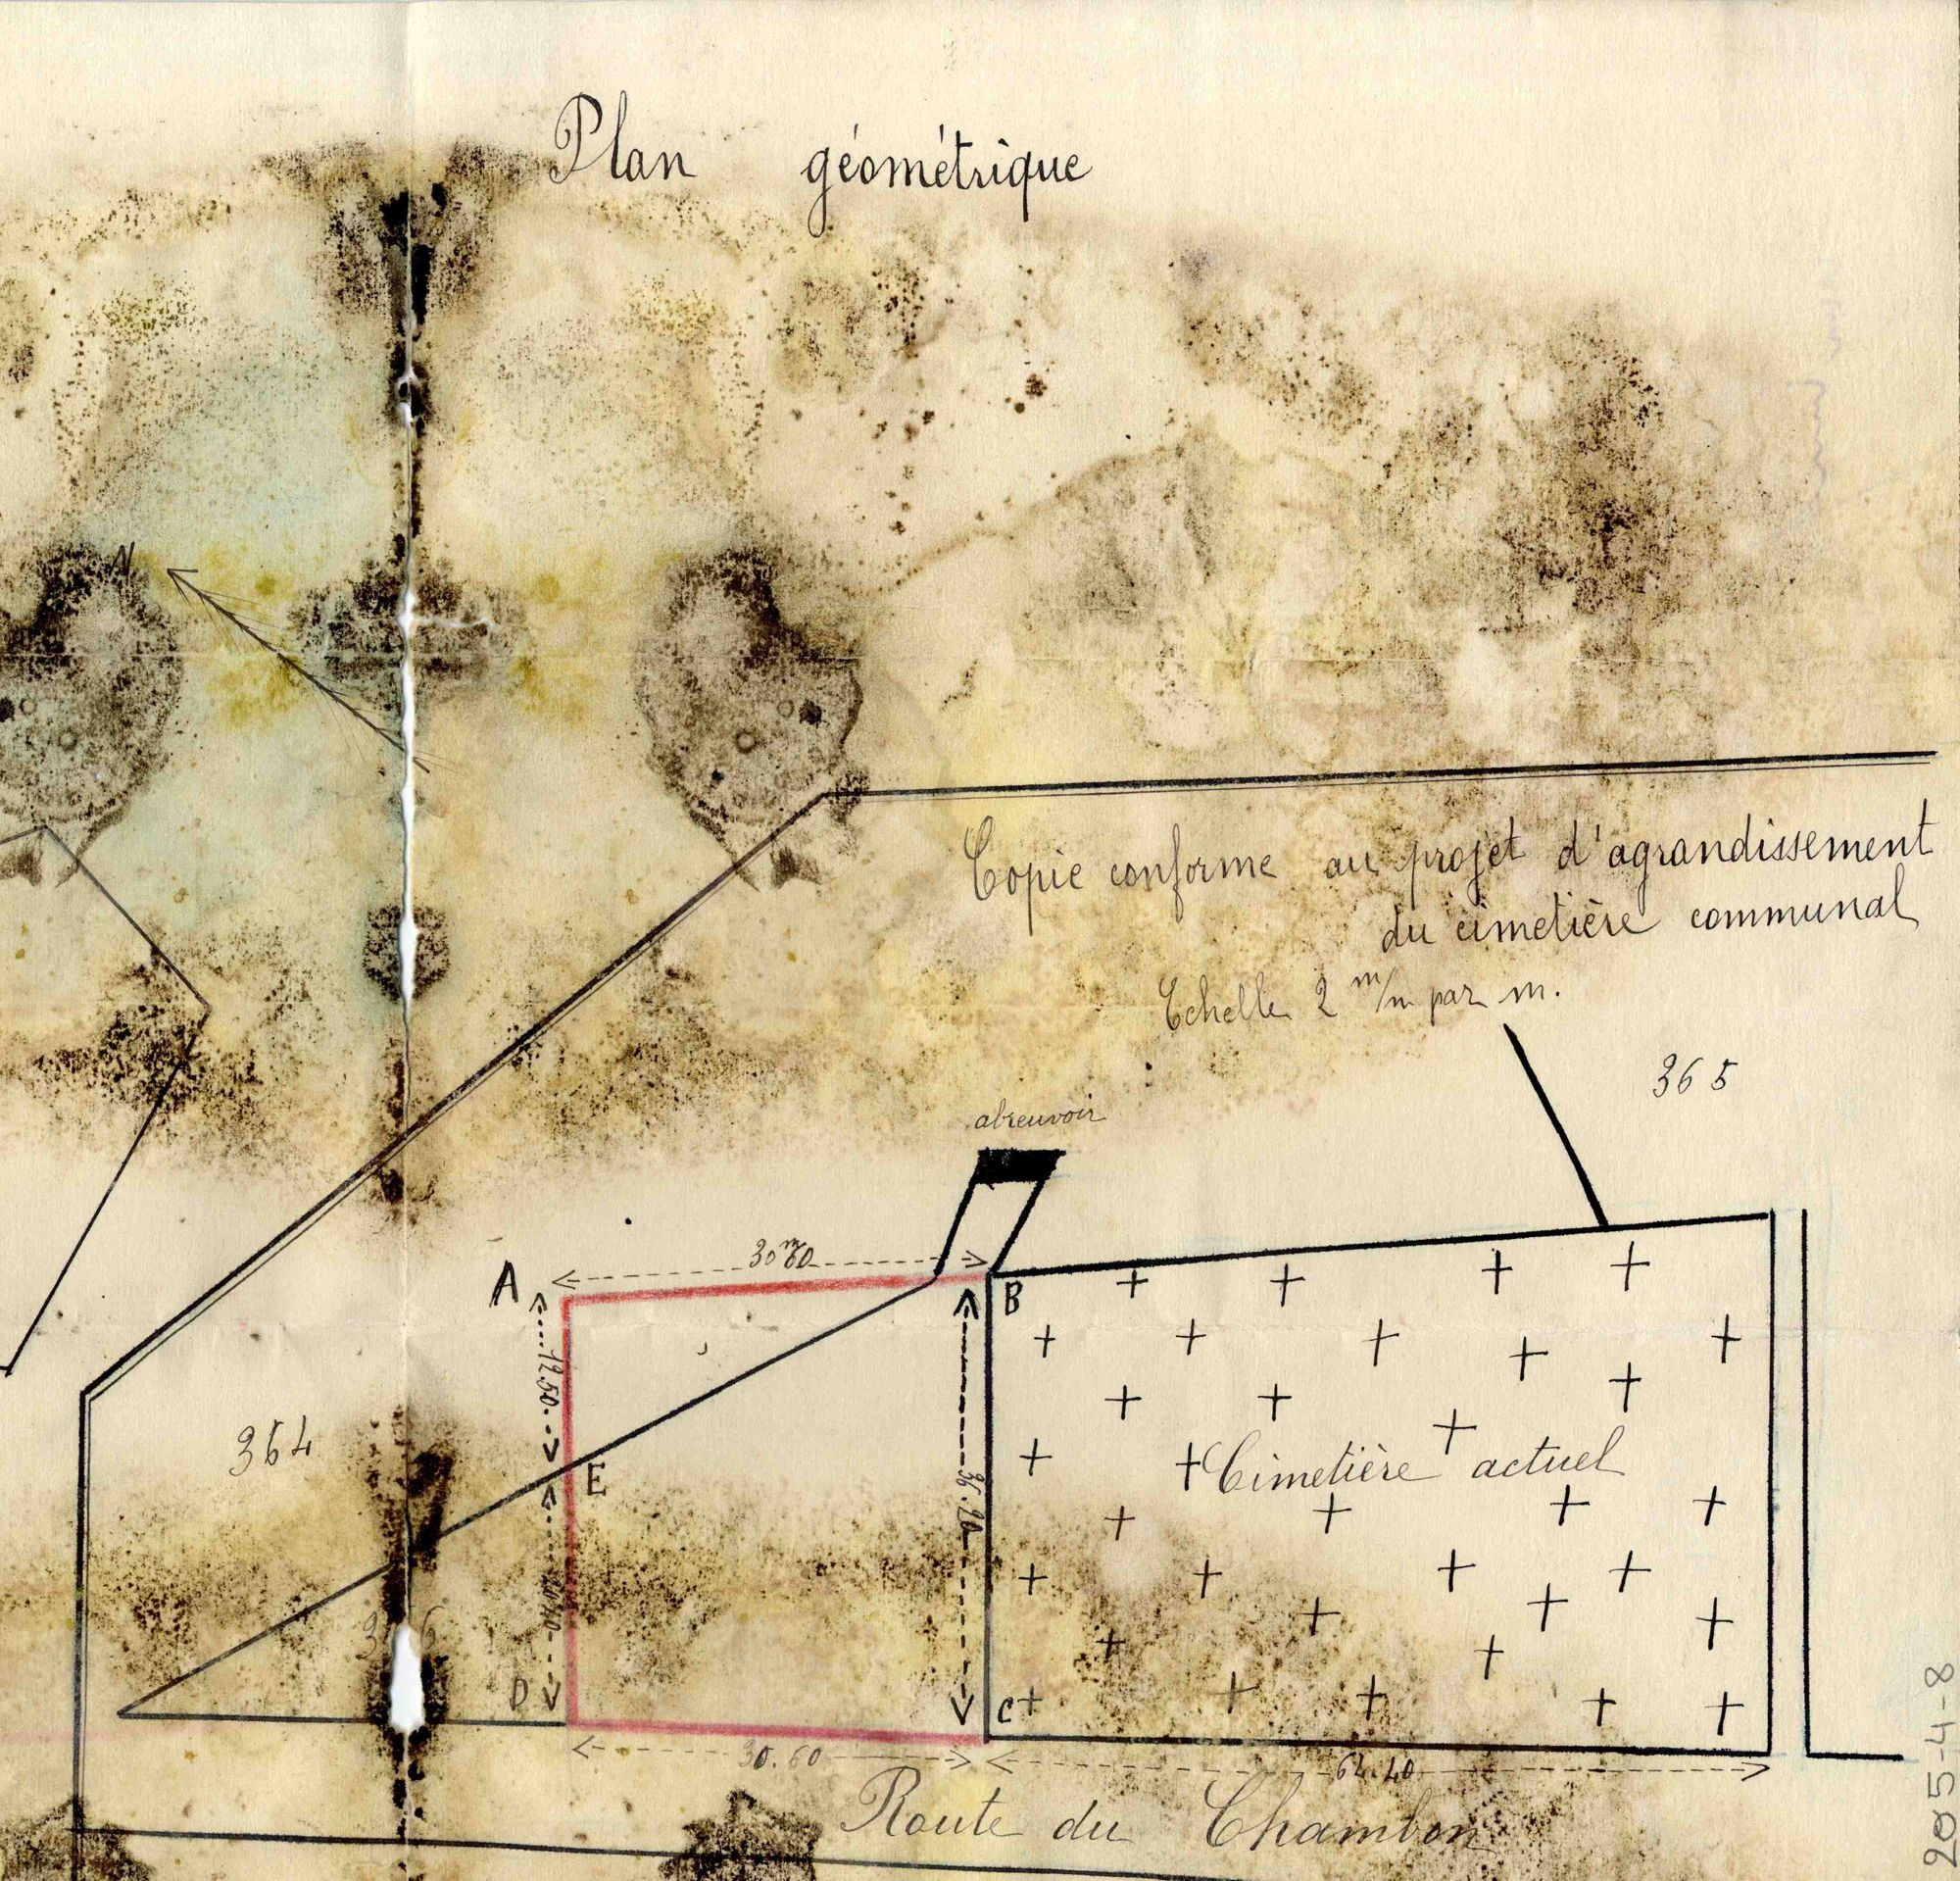 Plan géométrique
N
Copie conforme au projet d'agrandissement
du cimetière communal
Echelle 2 m/m par m.
365
abreuvoir
30m60
A
B
12.50
364
E
36.20
Cimetière actuel
D
C
30.60
64.40
Route du Chambon
205-4-8